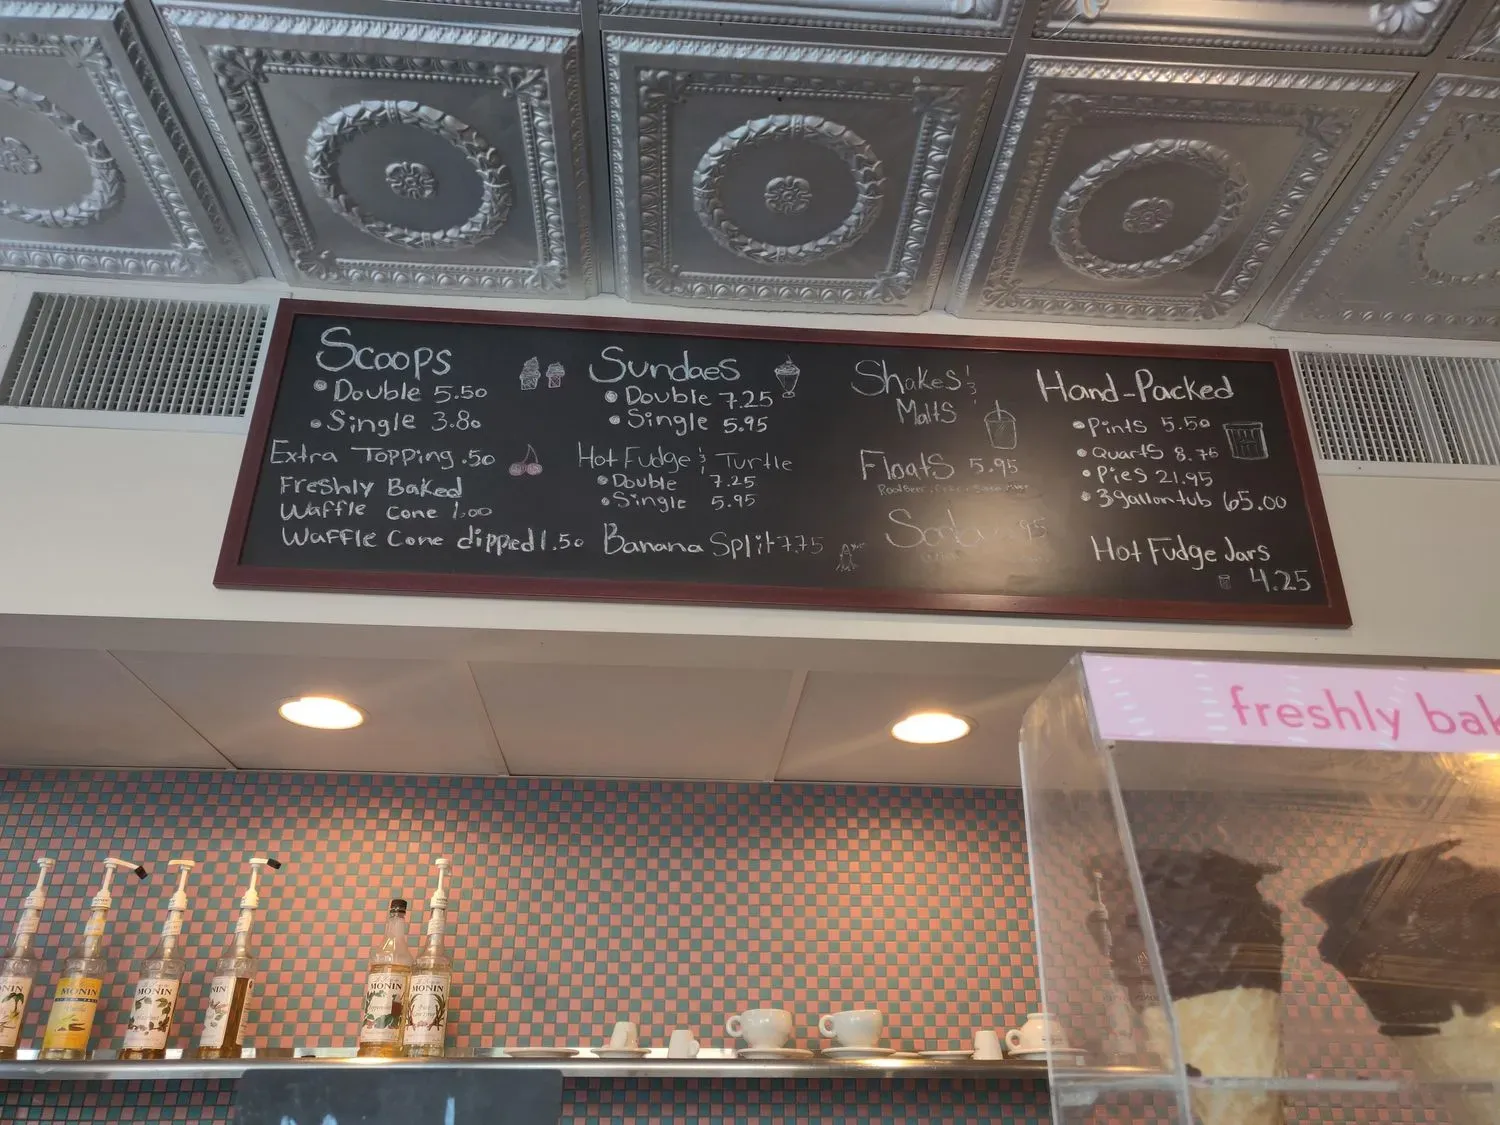 Scoops
Double 5.50
Single 3.80
Extra Topping .50
Freshly Baked
Waffle Cone 1.00
Waffle Cone dipped 1.50
Sundaes
Double 7.25
Single 5.95
Hot Fudge & Turtle
Double 7.25
Single 5.95
Banana Split 7.75
Shakes &
Malts
Floats 5.95
Hand-Packed
Pints 5.50
Quarts 8.75
Pies 21.95
3 gallon tub 65.00
Hot Fudge Jars
4.25
freshly bak
MONIN
MONIN
MONIN
MONIN